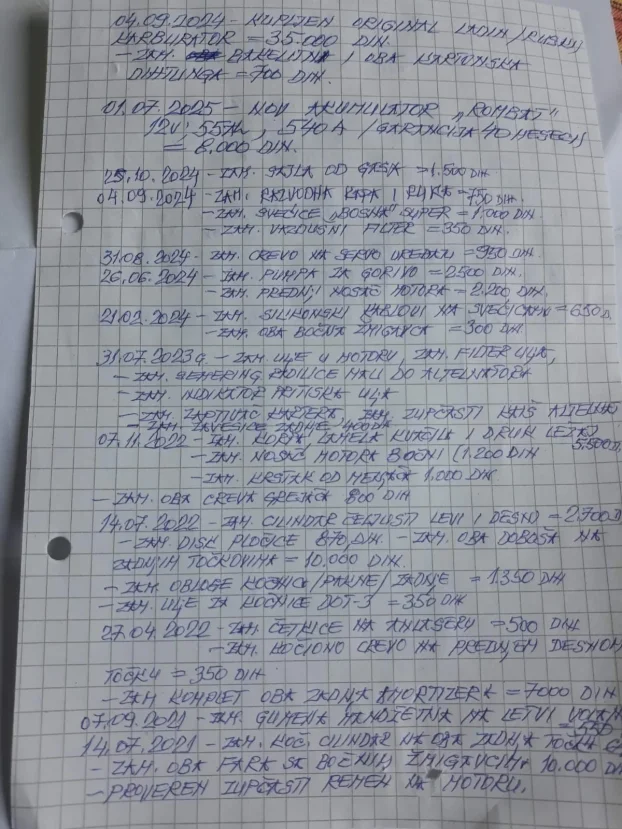 04.09.2024 - KUPLJEN ORIGINAL LADIN /RUSKI/
KARBURATOR = 35.000 DIN.
- ZAM. BAKELITNA I OBA KARTONSKA
DIHTUNGA = 700 DIN.
01.07.2025 - NOV AKUMULATOR „ROMBAT"
12V, 55Ah, 540A /GARANCIJA 40 MESECI/
= 8.000 DIN.
25.10.2024 - ZAM. SAJLA OD GASA = 1.500 DIN
04.09.2024 - ZAM. RAZVODNA KAPA I RUKA = 750 DIN.
- ZAM. SVEĆICE „BOSNA" SUPER = 1.000 DIN
- ZAM. VAZDUŠNI FILTER = 350 DIN.
31.08.2024 - ZAM. CREVO NA SERVO UREĐAJU = 950 DIN.
26.06.2024 - ZAM. PUMPA ZA GORIVO = 2500 DIN.
- ZAM. PREDNJI NOSAČ MOTORA = 2.200 DIN.
21.02.2024 - ZAM. SILIKONSKI KABLOVI NA SVEĆICAMA = 650 D
- ZAM. OBA BOČNA ŽMIGAVCA = 300 DIN
31.07.2023 g - ZAM. ULJE U MOTORU, ZAM. FILTER ULJA,
- ZAM. SEMERING RADILICE MALI DO ALTERNATORA
- ZAM. INDIKATOR PRITISKA ULJA
- ZAM. ZAPTIVAČ KARTERA, ZAM. ZUPČASTI KAIŠ ALTERNA
- ZAM. ZAVESICE ZADNJE 400 DIN
07.11.2022 - ZAM. KORPA, LAMELA KVAČILA I DRUK LEŽAJ
5.500 D
- ZAM. NOSAČ MOTORA BOČNI (1.200 DIN
- ZAM. KRSTAK OD MENJAČA 1.000 DIN
- ZAM. OBA CREVA GREJAČA 800 DIN
14.07.2022 - ZAM. CILINDAR ČELJUSTI LEVI I DESNI = 2.700 D
- ZAM. DISK PLOČICE 870 DIN. - ZAM. OBA DOBOŠA NA
ZADNJIM TOČKOVIMA = 10.000 DIN.
- ZAM. OBLOGE KOČNICA /PAKNE/ ZADNJE = 1.350 DIN
- ZAM. ULJE ZA KOČNICE DOT-3 = 350 DIN
27.04.2022 - ZAM. ČETKICE NA ANLASERU = 500 DIN
- ZAM. KOČIONO CREVO NA PREDNJEM DESNOM
TOČKU = 350 DIN
- ZAM KOMPLET OBA ZADNJA AMORTIZERA = 7000 DIN
07.09.2021 - ZAM. GUMENA MANŽETNA NA LETVI VOLANA
= 550
14.07.2021 - ZAM. KOČ. CILINDAR NA OBA ZADNJA TOČKA
- ZAM. OBA FARA SA BOČNIM ŽMIGAVCIMA 10.000 DIN
- PROVEREN ZUPČASTI REMEN NA MOTORU.